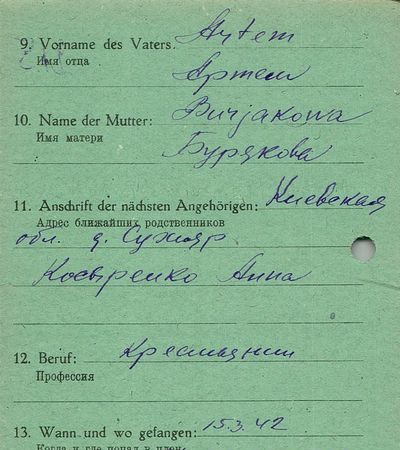 9. Vorname des Vaters. Artem
Имя отца
Артем
10. Name der Mutter: Burjakowa
Имя матери
Бурякова
11. Anschrift der nächsten Angehörigen: Киевская
Адрес ближайших родственников
обл. д. Сухояр
Косыренко Анна
12. Beruf: Крестьянин
Профессия
13. Wann und wo gefangen: 15.3.42
Когда и где попал в плен: